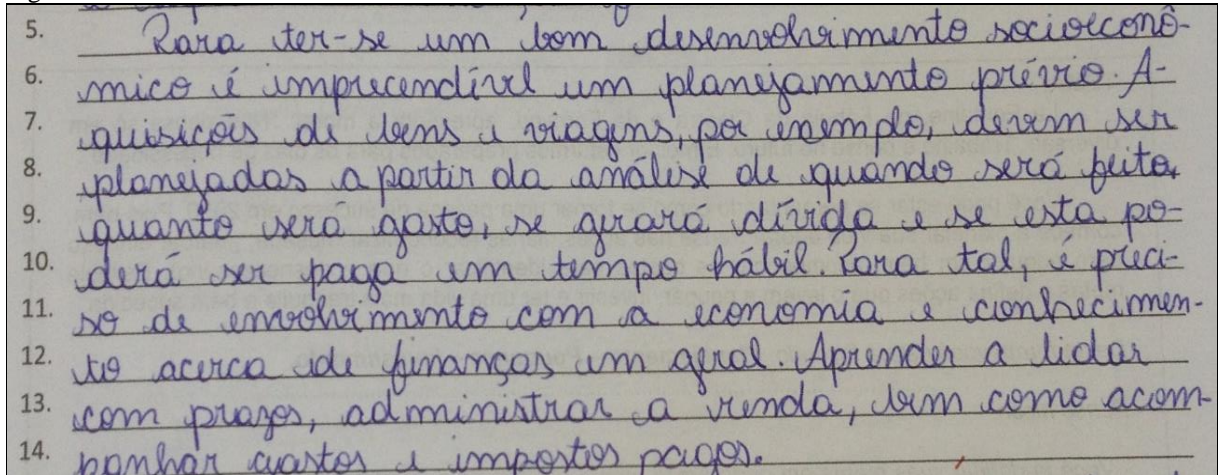 5. Para ter-se um bom desenvolvimento socioeconô-
6. mico é imprecendível um planejamento prévio. A-
7. quisições de bens e viagens, por exemplo, devem ser
8. planejadas a partir da análise de quando será feita,
9. quanto será gasto, se gerará dívida e se esta po-
10. derá ser paga em tempo hábil. Para tal, é preci-
11. so de envolvimento com a economia e conhecimen-
12. to acerca de finanças em geral. Aprender a lidar
13. com prazos, administrar a renda, bem como acom-
14. panhar gastos e impostos pagos.